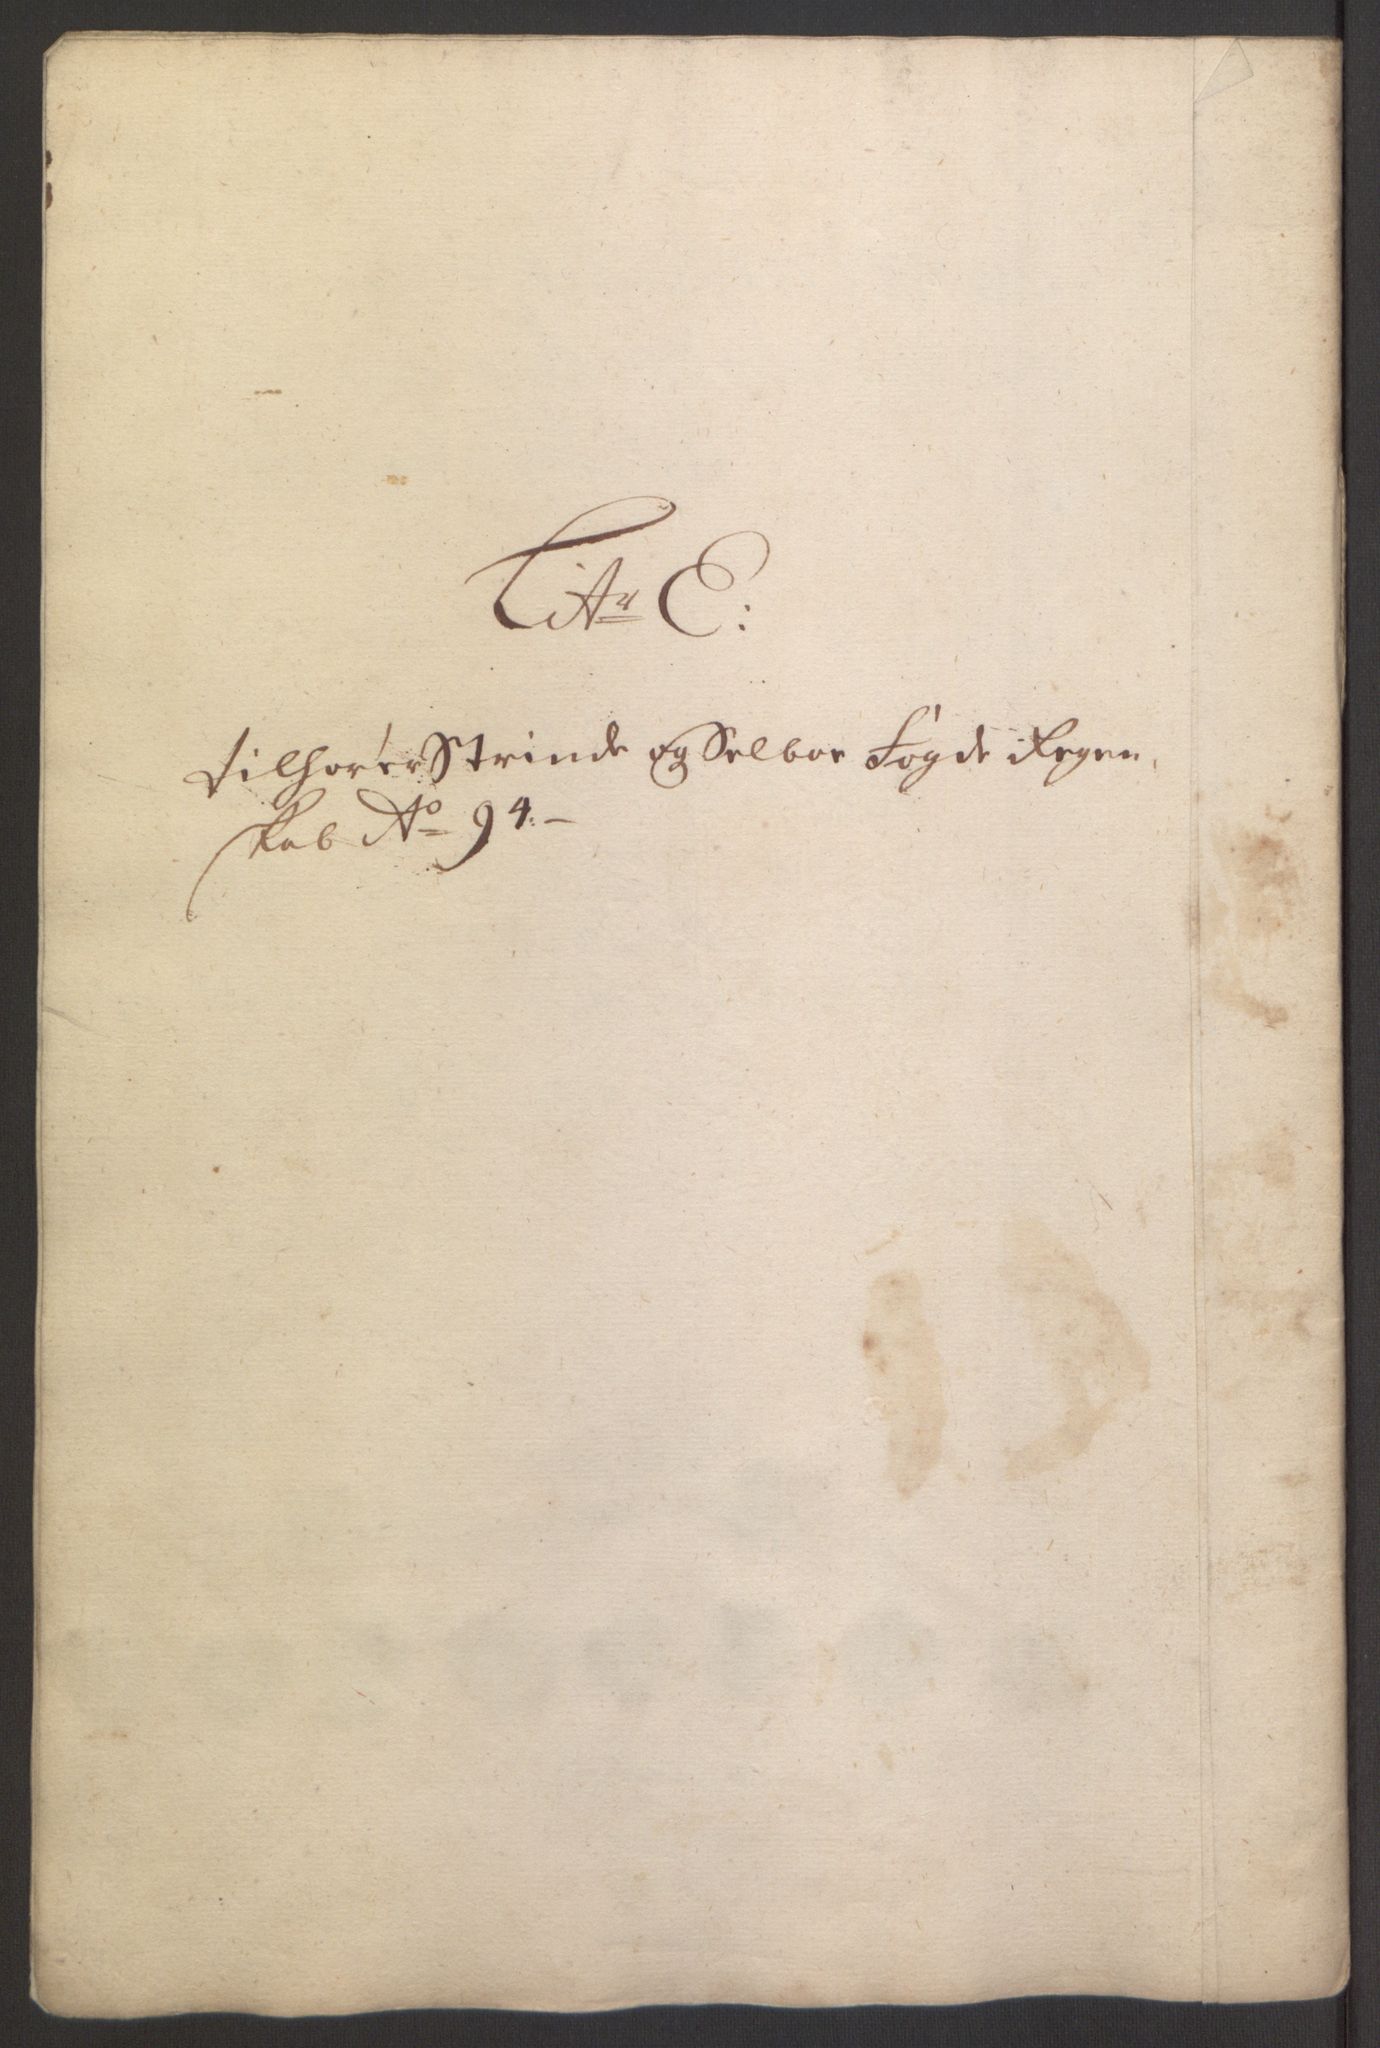 Litr E:
tilhörer Strinde og Selboe Fogde Regen,
skab Ao 94.-